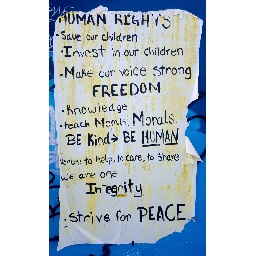 HUMAN RIGHTS
• Save our children
• Invest in our children
• Make our voice strong
FREEDOM
• Knowledge
• teach Morals, Morals.
BE Kind → BE HUMAN
to help, to care, to share
we are one
Integrity
• Strive for PEACE